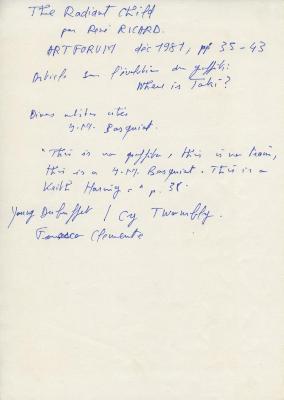 The Radiant Child
par René RICARD.
ARTFORUM déc 1981, pp 35-43
Article sur l'évolution du graffiti:
Where is Taki?
Divers artistes cités
J.M. Basquiat.
"This is no graffiti, this is no train,
this is a J.M. Basquiat. This is a
Keith Haring." p. 38
Young Dubuffet / Cy Twombly.
Francesco Clemente